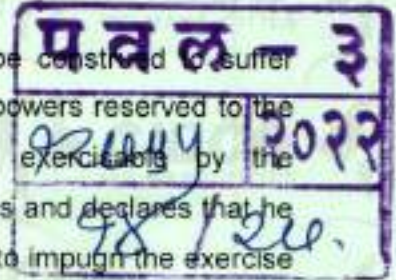 प व ल - ३
be construed to suffer
powers reserved to the
२०२२
exercisable by the
and declares that he
to impugn the exercise